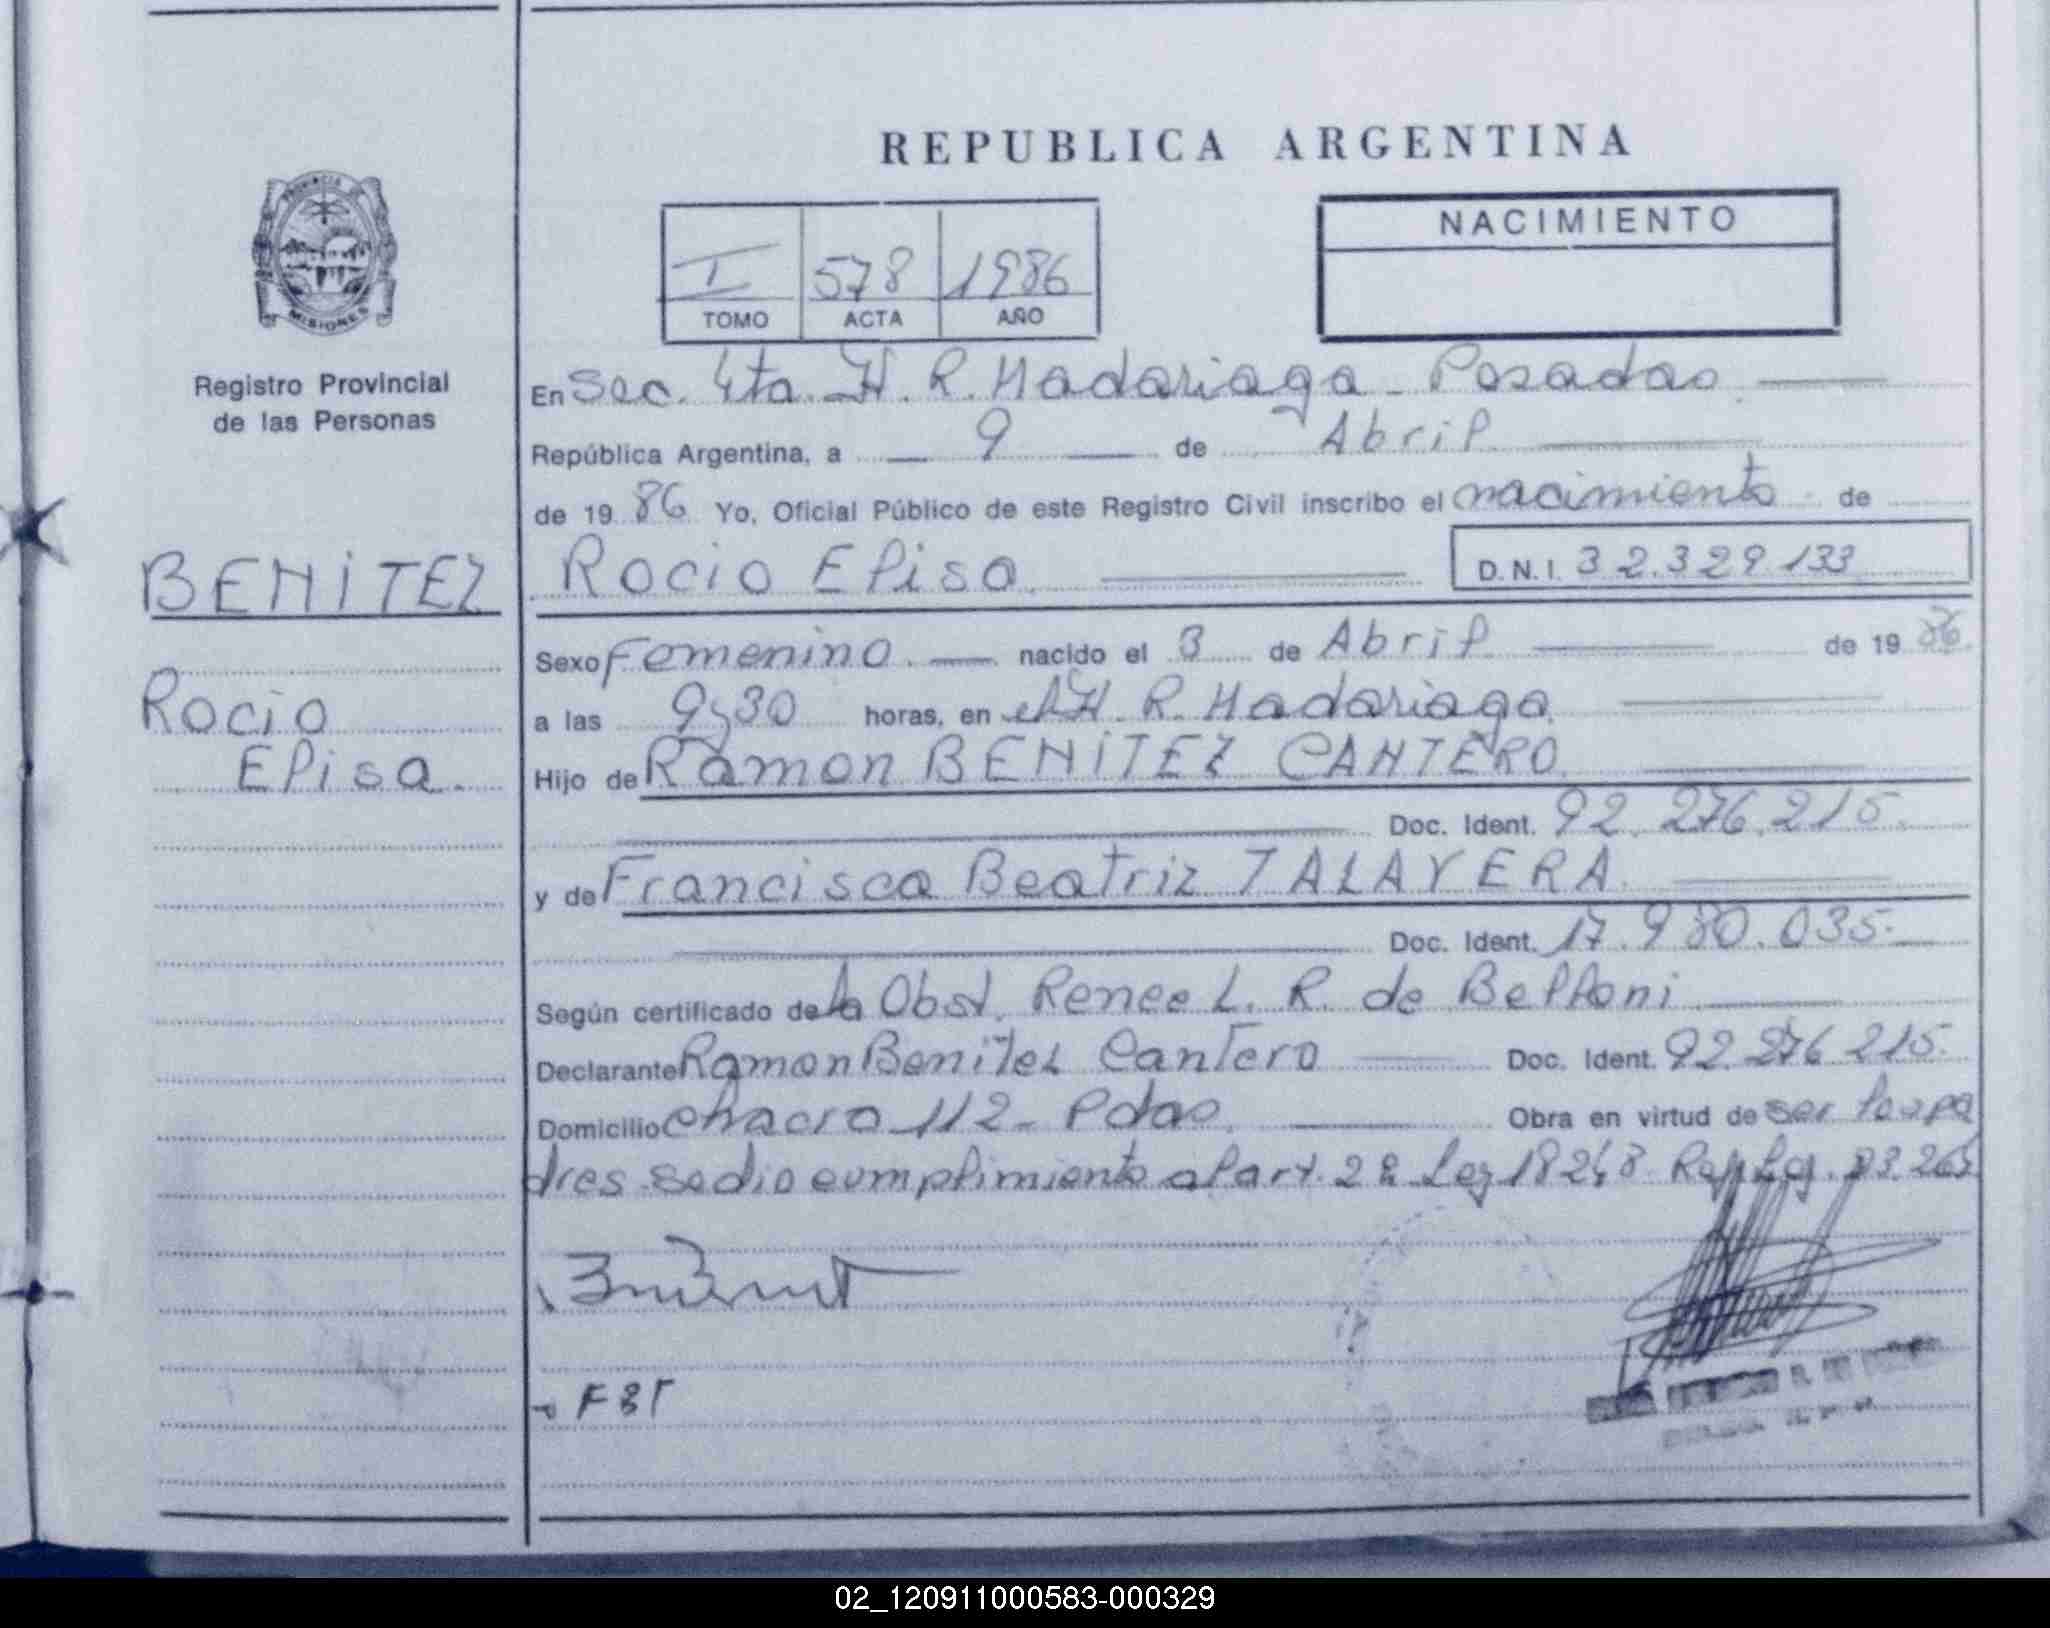 REPUBLICA ARGENTINA
PROVINCIA DE
MISIONES
Registro Provincial
de las Personas
I 578 1986
TOMO ACTA AÑO
NACIMIENTO
En Sec. 4ta. H. R. Madariaga - Posadas
República Argentina, a 9 de Abril
de 19 86 Yo, Oficial Público de este Registro Civil inscribo el nacimiento de
BENITEZ
Rocio Elisa. D.N.I. 32.329.133
Sexo Femenino. nacido el 3 de Abril de 19 86.
Rocio
Elisa.
a las 9,30 horas, en el H. R. Madariaga.
Hijo de Ramon BENITEZ CANTERO.
Doc. Ident. 92.276.215.
y de Francisca Beatriz TALAVERA.
Doc. Ident. 17.980.035.
Según certificado de la Obst. Renee L. R. de Belloni
Declarante Ramon Benitez Cantero Doc. Ident. 92.276.215.
Domicilio chacra 112 - Pdas. Obra en virtud de ser los pa
dres se dio cumplimiento al art. 2 Ley 18248
F B T
02_120911000583-000329